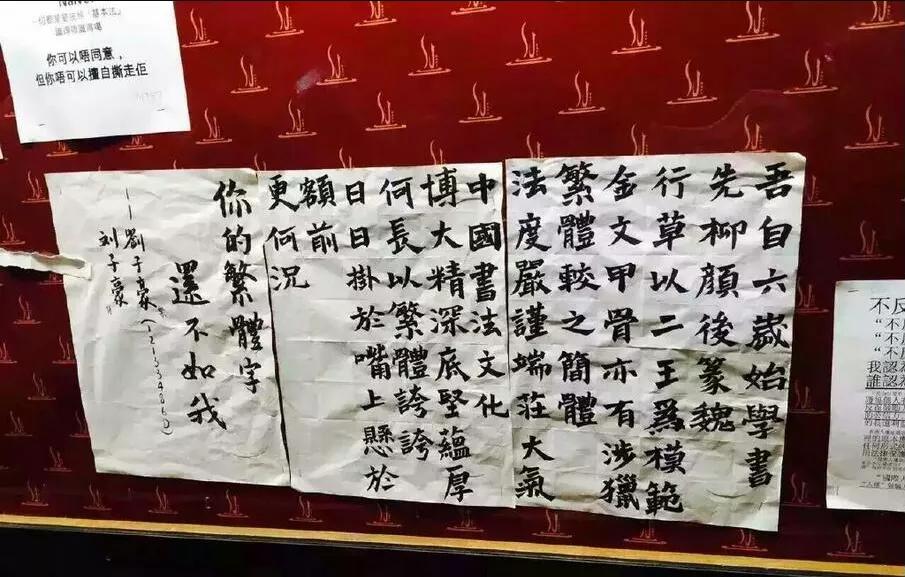 你可以唔同意，
但你唔可以擅自撕走佢
吾自六歲始學書
先柳顏後篆魏
行草以二王爲模範
金文甲骨亦有涉獵
繁體較之簡體
法度嚴謹端莊大氣
中國書法文化
博大精深底堅蘊厚
何長以繁體誇誇
日日掛於嘴上懸於
額前
更何況
你的繁體字
還不如我
——劉子豪
刘子豪
不反
"不反
"不反
"不反
我認為
誰認為